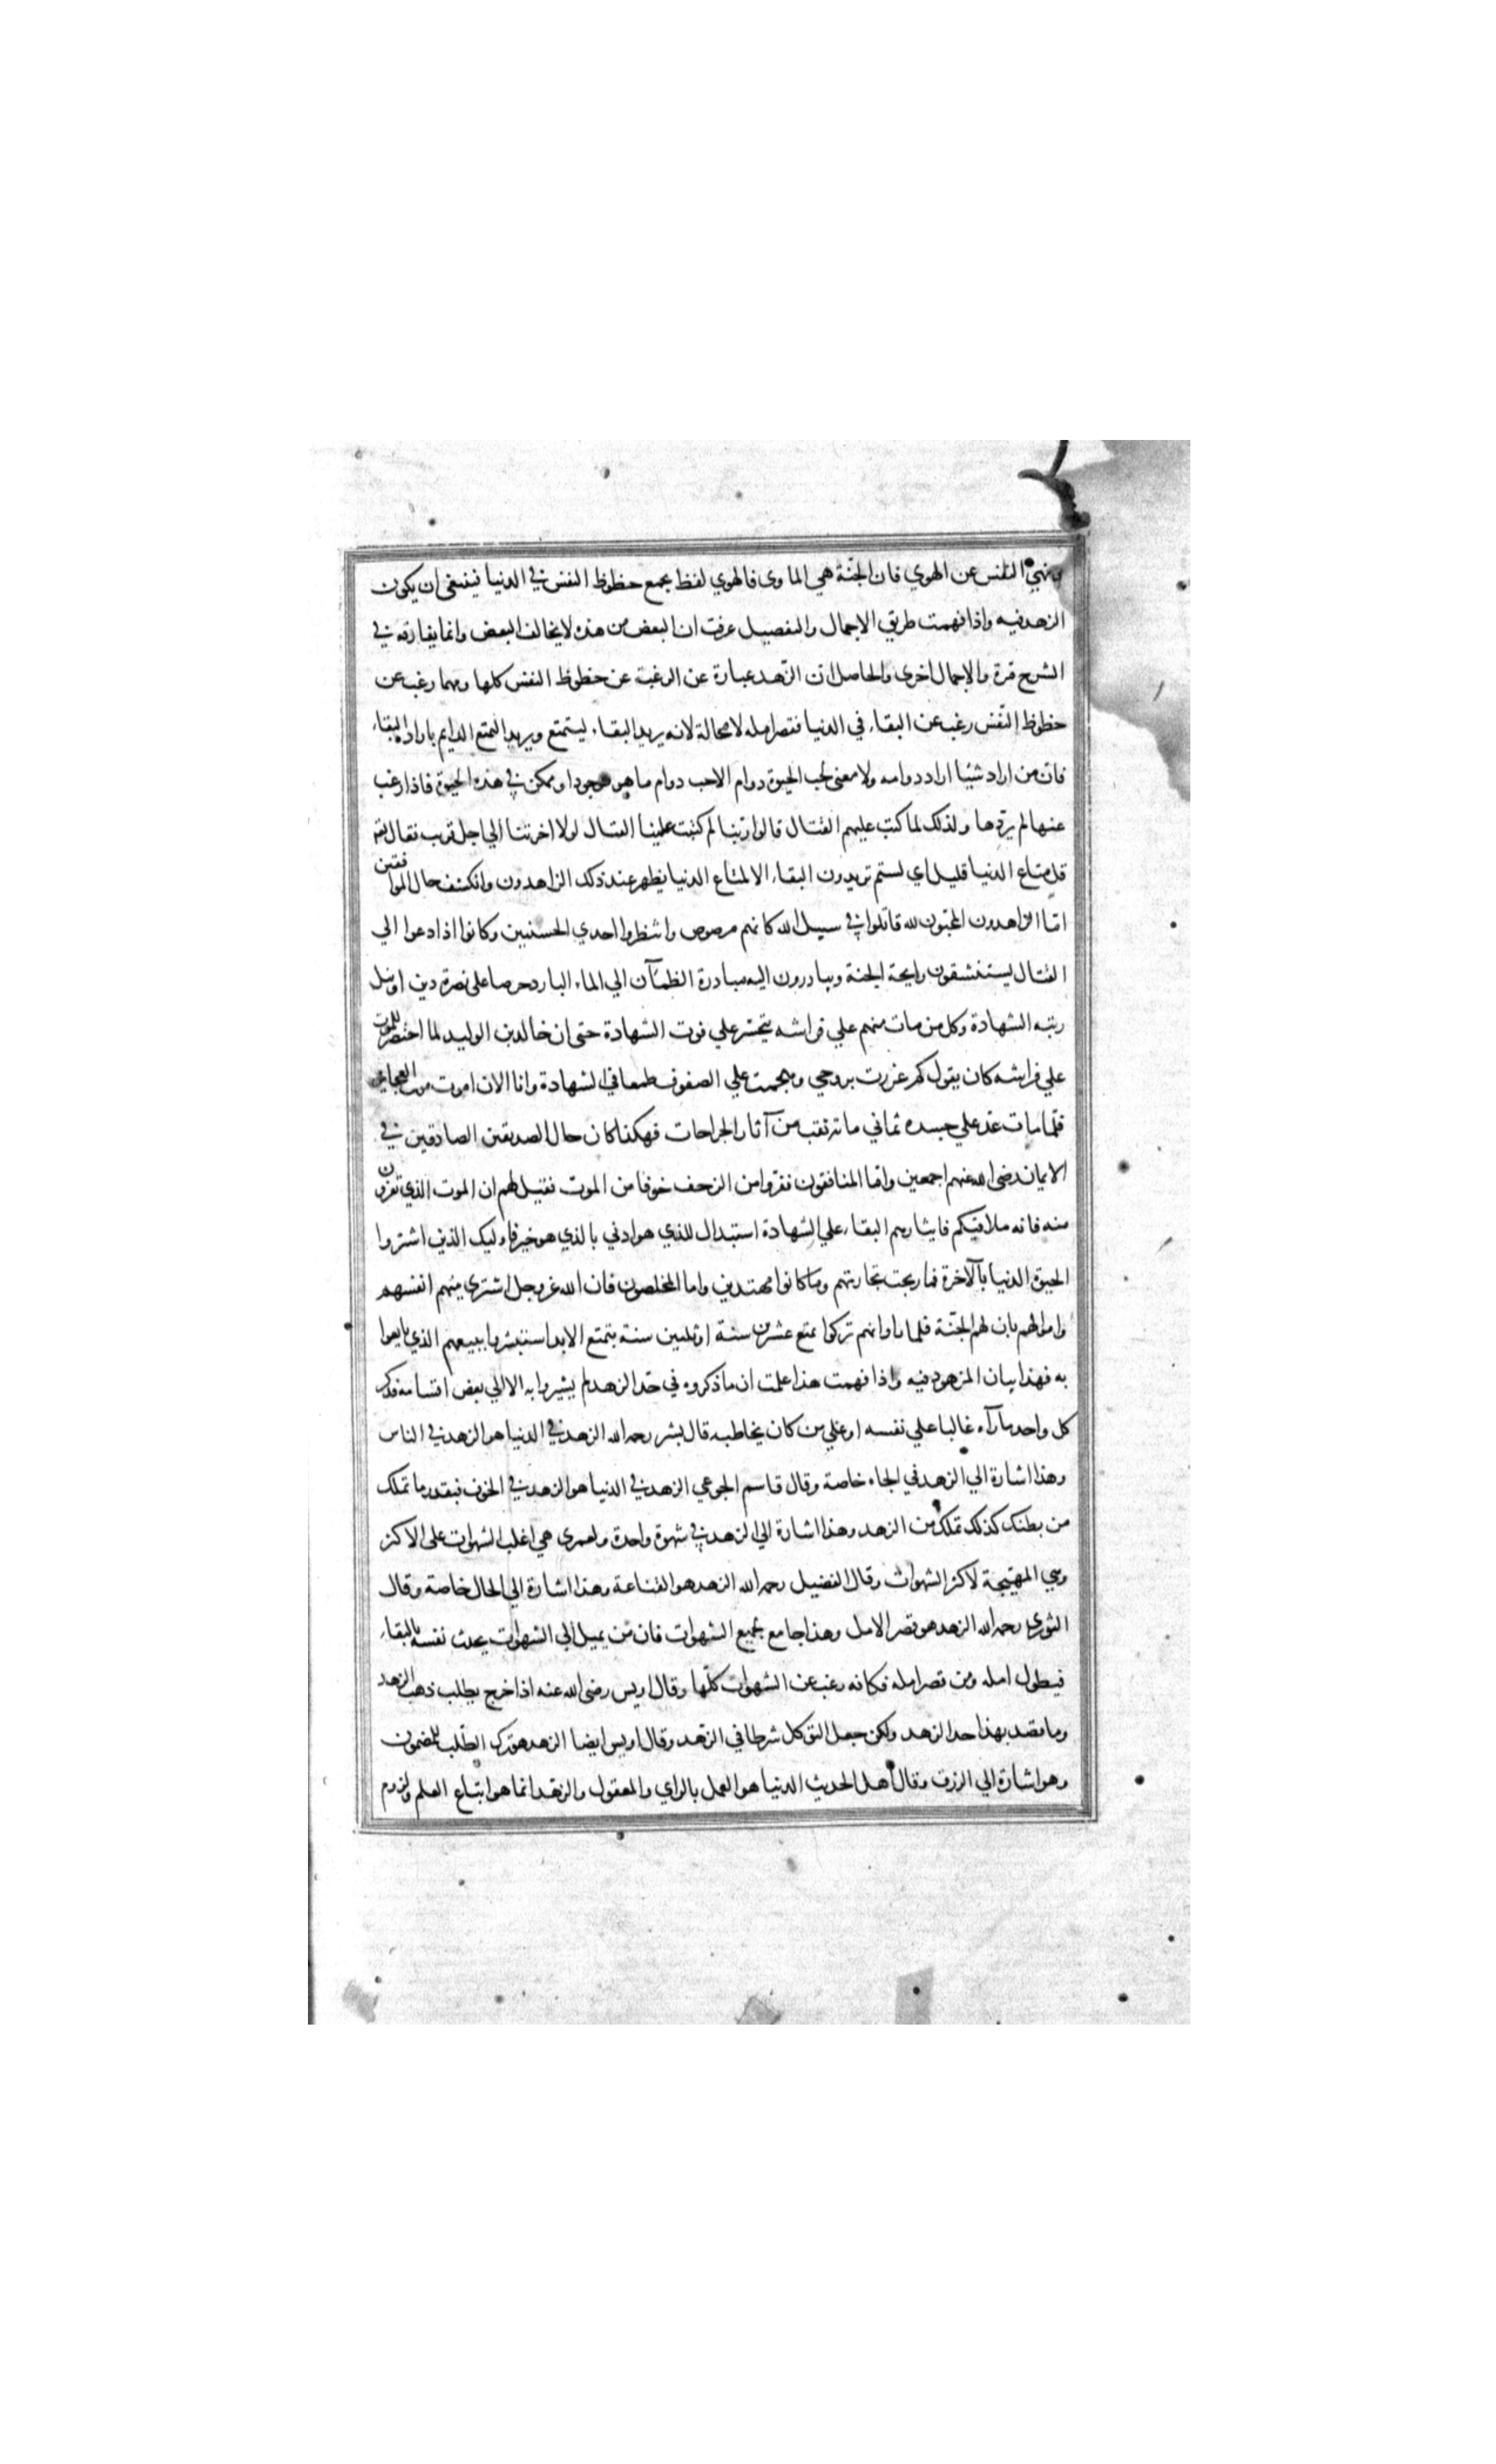 ونهي النفس عن الهوي فان الجنّة هي الماوى فالهوي لفظ يجمع حظوظ النفس في الدنيا فينبغي ان يكون
الزهد فيه واذا فهمت طريق الاجمال والتفصيل عرفت ان البعض من هذه لا يخالف البعض وانما يفارقه في
الشرح مرة والاجمال اخرى والحاصل ان الزّهد عبارة عن الرغبة عن حظوظ النفس كلها ومهما رغب عن
حظوظ النّفس رغب عن البقاء في الدنيا فقصر امله لا محالة لانه يريد البقاء ليستمتع ويريد التمتع الدايم باراد البقاء
فان من اراد شيئا اراد دوامه ولا معنى لحب الحيوة دوام الاحب دوام ما هو موجود او ممكن في هذه الحيوة فاذا رغب
عنها لم يردها ولذلك لما كتب عليهم القتال قالوا ربّنا لم كتبت علينا القتال لولا اخرتنا الي اجل قريب فقال
قل متاع الدنيا قليل اي لستم تريدون البقاء الا لمتاع الدنيا يظهر عند ذلك الزاهدون وانكشف حال الموافقين
امّا الزاهدون المحبّون لله قاتلوا في سبيل الله كانهم مرصوص وانتظروا احدي الحسنيين وكانوا اذا دعوا الي
القتال يستنشقون رايحة الجنة ويبادرون اليه مبادرة الظمآن الي الماء البارد حرصا على نصرة دين او نيل
رتبه الشهادة وكل من مات منهم علي فراشه يتحسّر علي فوت الشهادة حتى ان خالد بن الوليد لما احتضر للموت
علي فراشه كان يقول كم غررت بروحي وهجمت علي الصفوف طمعا في الشهادة وانا الان اموت موت العجايز
فلمّا مات عد علي جسده ثماني ماية نقب من آثار الجراحات فهكذا كان حال الصديقين الصادقين في
الايمان رضى الله عنهم اجمعين وامّا المنافقون ففروا من الزحف خوفا من الموت فقيل لهم ان الموت الذي تفرون
منه فانه ملاقيكم فايثارهم البقاء علي الشهادة استبدال للذي هو ادني بالذي هو خير فاوليك الذين اشتروا
الحيوة الدنيا بالآخرة فما ربحت تجارتهم وما كانوا مهتدين واما المخلصون فان الله عز وجل اشترى منهم انفسهم
واموالهم بان لهم الجنّة فلما راوا انهم تركوا تمتع عشرين سنة او ثلثين سنة بتمتع الابد استبشروا ببيعهم الذي بايعوا
به فهذا بيان المزهود فيه واذا فهمت هذا علمت ان ما ذكروه في حدّ الزهد لم يشيروا به الا الي بعض اقسامه فذكر
كل واحد ما رآه غالبا علي نفسه او علي من كان يخاطبه قال بشر رحمه الله الزهد في الدنيا هو الزهد في الناس
وهذا اشارة الي الزهد في الجاه خاصة وقال قاسم الجوعي الزهد في الدنيا هو الزهد في الجوف فبقدر ما تملك
من بطنك كذلك تملك من الزهد وهذا اشارة الي الزهد في شهوة واحدة ولعمري هي اغلب الشهوات على الاكثر
وهي المهيّجة لاكثر الشهوات وقال الفضيل رحمه الله الزهد هو القناعة وهذا اشارة الي الحال خاصة وقال
الثوري رحمه الله الزهد هو قصر الامل وهذا جامع لجميع الشهوات فان من يميل الي الشهوات يحدث نفسه بالبقاء
فيطول امله ومن قصر امله فكانه رغب عن الشهوات كلّها وقال اويس رضى الله عنه اذا خرج يطلب ذهب الزهد
وما قصد بهذا حد الزهد ولكن جعل التوكل شرطا في الزهد وقال اويس ايضا الزهد هو ترك الطّلب للمضمون
وهو اشارة الي الرزق وقال اهل الحديث الدنيا هو العمل بالراي والمعقول والزهد انما هو اتباع العلم ولزوم